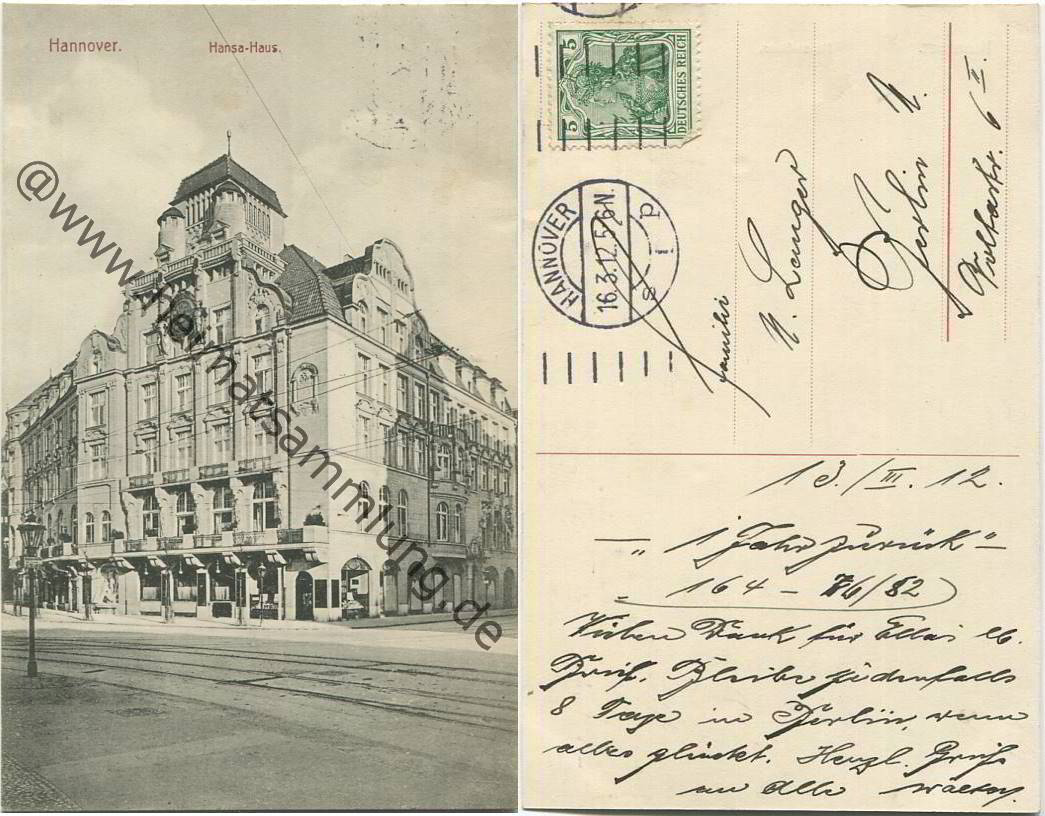 Hannover.
Hansa-Haus.
@www.heimatsammlung.de
5 5
DEUTSCHES REICH
HANNOVER
16.3.12.5-6N.
Familie
N. Langer
Berlin N.
6 II.
13./III. 12.
— „1 Jahr zurück" —
164 – 76/82
Vielen Dank für Ellas lb.
Brief. Bleibe jedenfalls
8 Tage in Berlin, wenn
alles glückt. Herzl. Grüße
an Alle Walter.